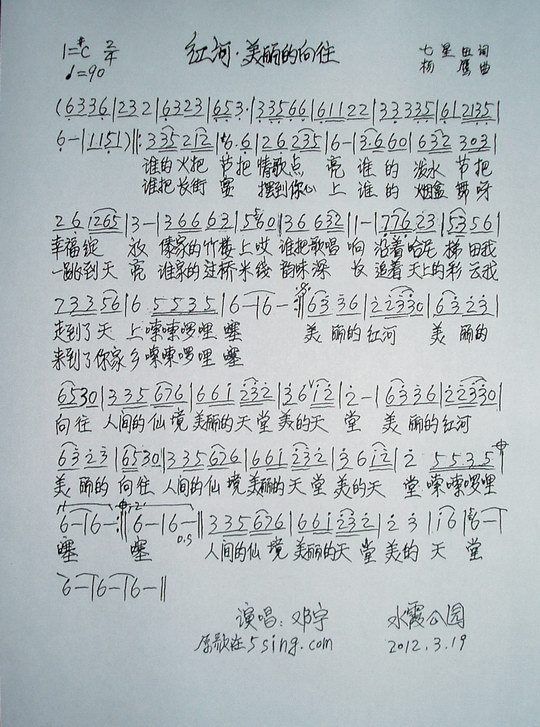 1=#C 2/4 红河·美丽的向往 七星田 词
♩=90 杨鹰 曲
(6336|232|6323|653·|33566|61122|33335|612135|
6-|1151)‖:335212|6·6|26235|6-|3·660|632 303|
谁的火把 节把情歌点 亮 谁的 泼水 节把
谁把长街 宴 摆到你心 上 谁的 烟盒 舞 牙
26 1265|3-|36663|5 60|36 632|1-|77623|5356|
幸福绽 放 傣家的竹楼上哎 谁把歌唱 响 沿着哈尼 梯田我
一跳到天 亮 谁家的过桥米线 韵味深 长 追着天上的彩 云我
7335 6|6 5535|6-|6-:‖6336|22330|6323|
走到了天 上嗦嗦啰哩 噻 美 丽的红河 美 丽的
来到了你家 乡嗦嗦啰哩 噻
6530|335 676|661 232|3 612|2-|6336|22330|
向往 人间的仙 境 美丽的天 堂 美的天 堂 美 丽的红河
6323|6530|335676|661 232|3 612|2 5535|
美 丽的 向往 人间的仙 境美丽的天 堂 美的天 堂嗦嗦啰哩
6-|6-:‖6-|6-‖335676|661232|2 3|16|6-|
噻 噻 D.S 人间的仙 境 美丽的天 堂 美的 天 堂
6-|6-|6-‖
演唱:邓宇 水霞公园
原歌在5sing.com 2012.3.19